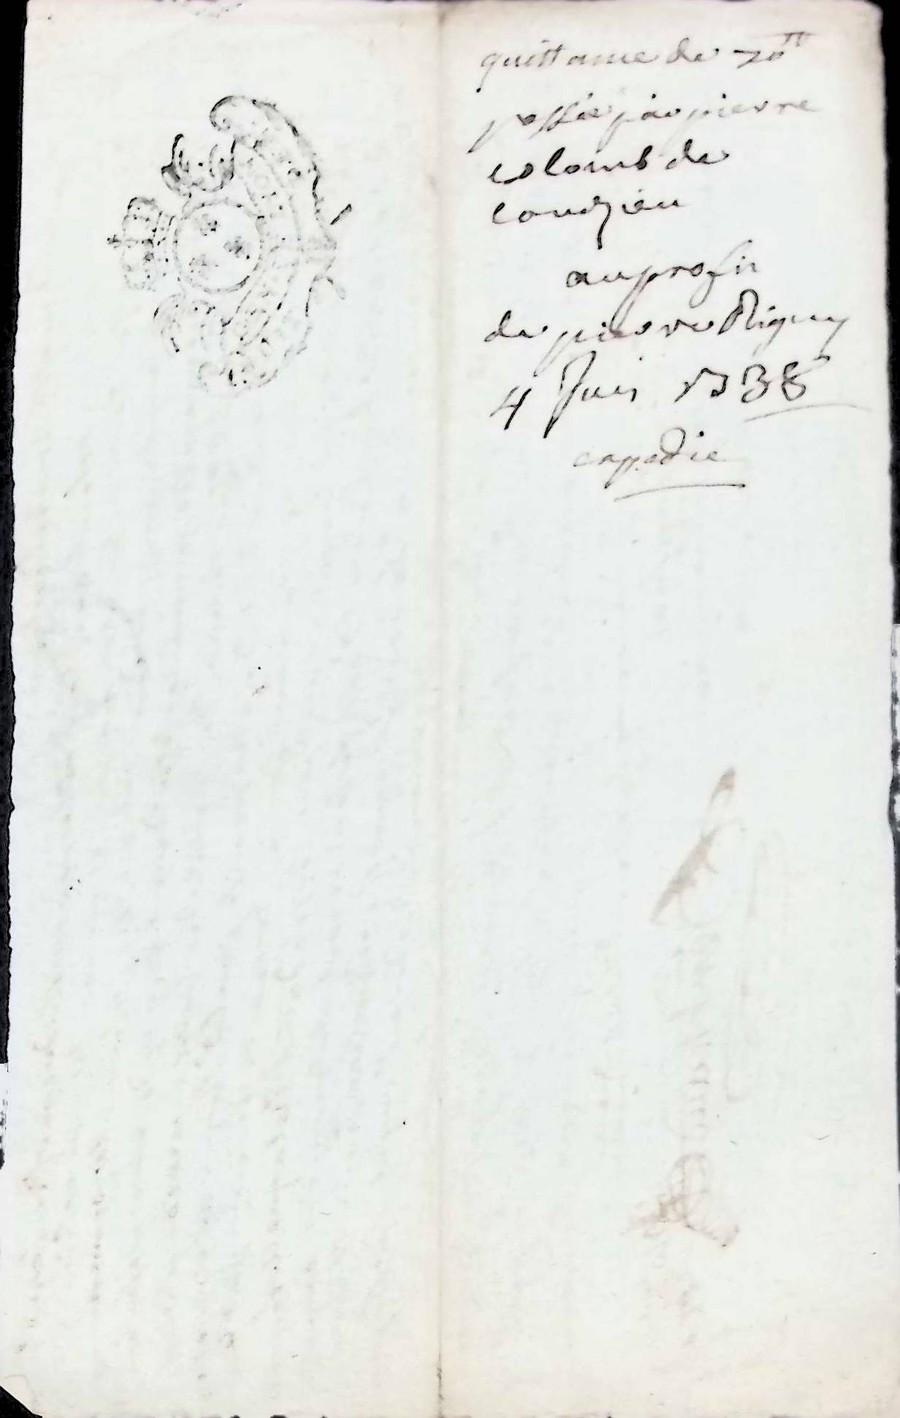 quittance de 70ᵗᵗ
passée par pierre
colomb de
coudzieu
au profit
de pierre Riguey
4 Juin 1738
expedie